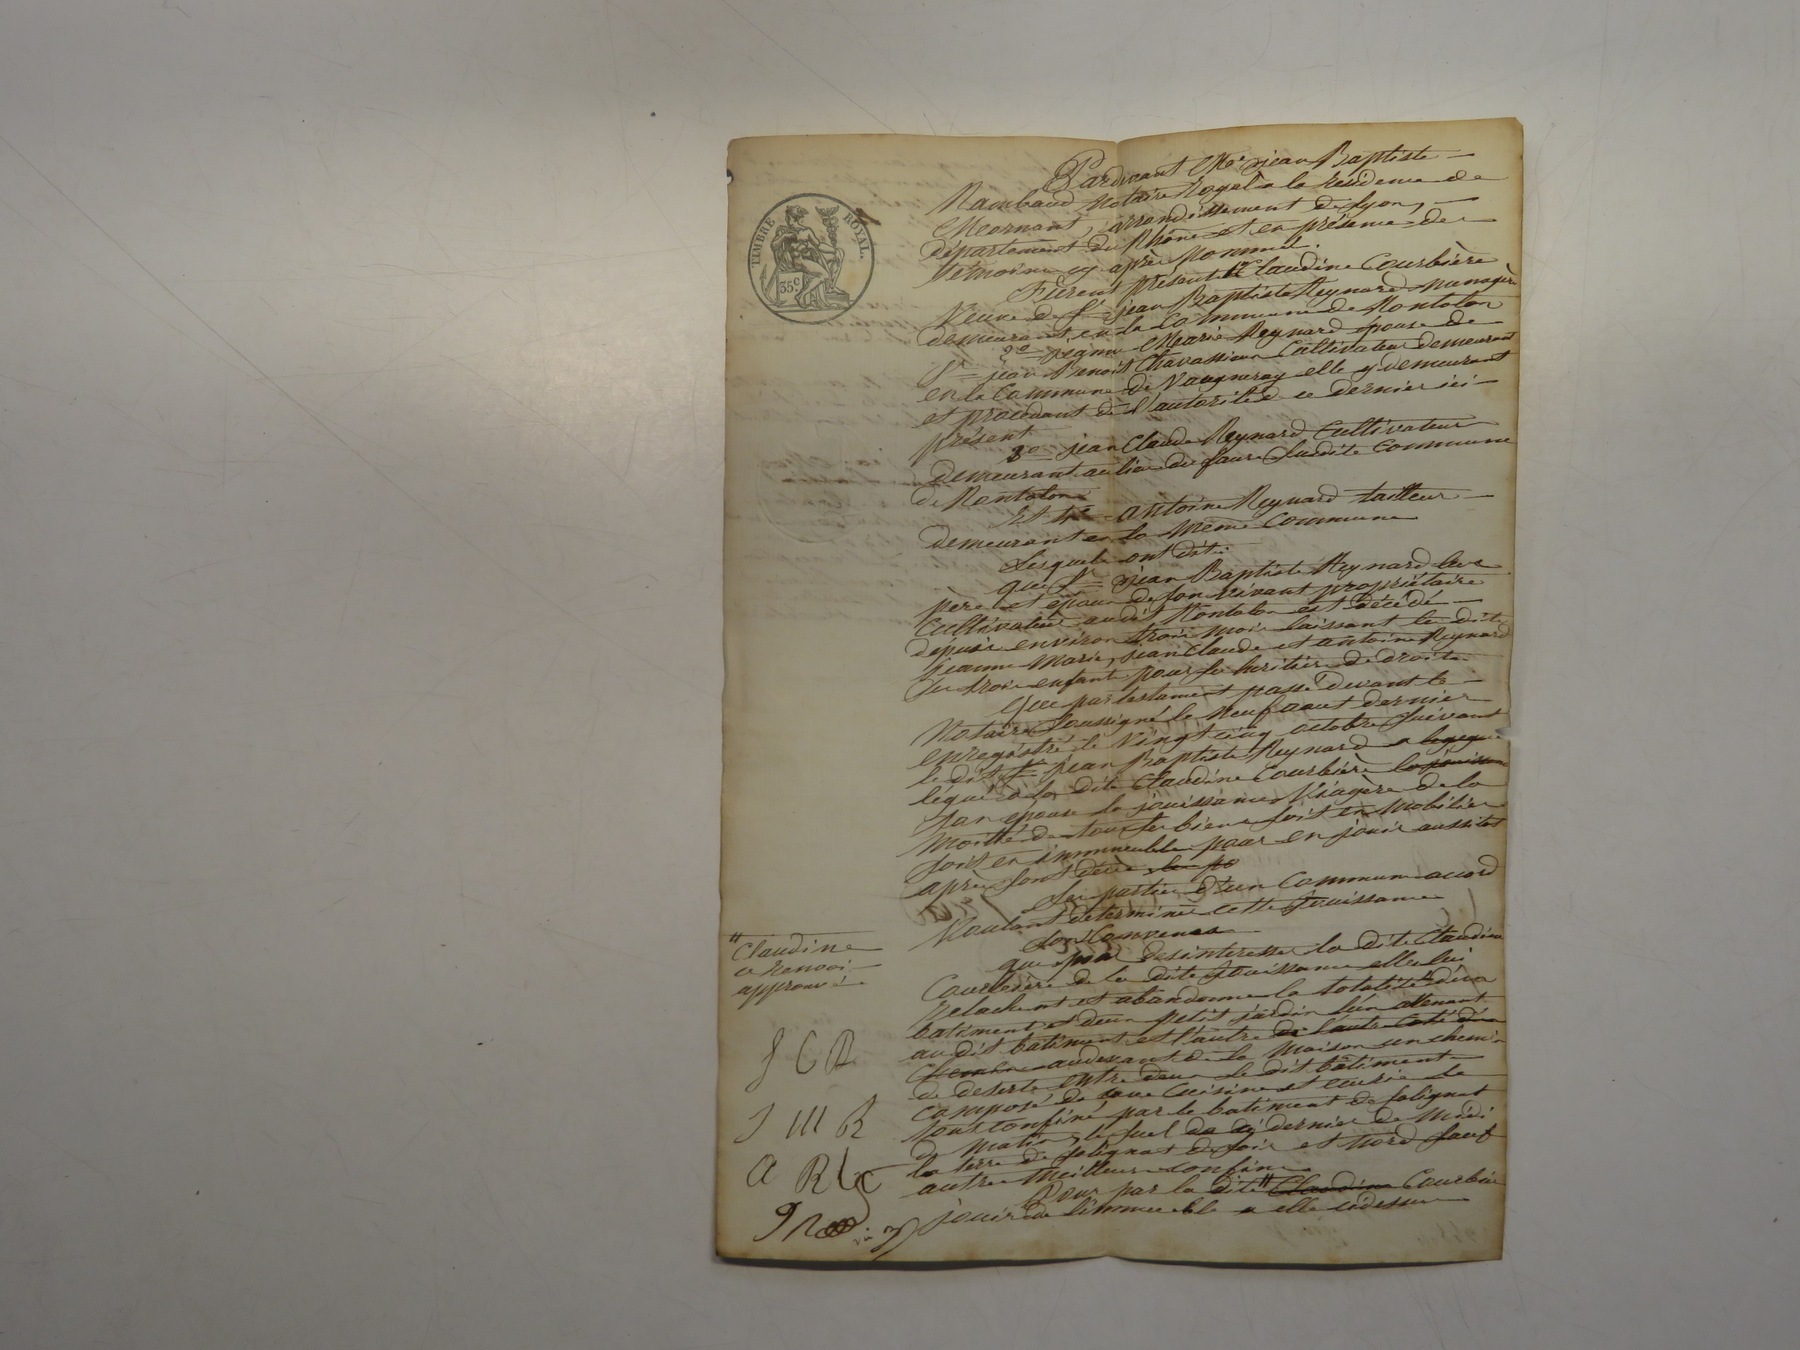 TIMBRE ROYAL.
35c
Pardevant Me jean Baptiste
Rambaud Notaire Royal à la residence de
Mornant, arrondissement de Lyon,
département du Rhône et en présence des
témoins cy après Nommés.
Furent présents 1º Claudine Courbière
Veuve de Sr jean Baptiste Reynard Menagère
demeurant en la Commune de Rontalon
2º jeanne Marie Reynard épouse de
Sr jean Benoit Chavassieux Cultivateur demeurant
en la Commune de Vaugneray elle y demeurant
et procédant de l'autorité de ce dernier ici
présent
3º jean Claude Reynard Cultivateur
demeurant au lieu du faure Susdite Commune
de Rontalon
Et 4º antoine Reynard tailleur
demeurant en la même Commune
Lesquels ont dit:
que Sr jean Baptiste Reynard leur
père et époux de son vivant propriétaire
Cultivateur audit Rontalon est décédé
depuis environ trois mois laissant les dits
jeanne Marie, jean Claude et antoine Reynard
ses trois enfants pour ses heritiers de droits
Que par testament passé devant le
Notaire Soussigné le Neuf aout dernier
enregistré le vingt cinq octobre Suivant
le dit Sr jean Baptiste Reynard a legegue
légué à la dite Claudine Courbière la jouissance
Son epouse la jouissance Viagère de la
moitié de tous ses biens soit en Mobilier
soit en immmeubles pour en jouir aussitot
après son décès les po
Les parties d'un Commun accord
Voulant déterminer cette Jouissance
sont Convenus
que pour desinteresser la dite Claudine
Courbière de la dite Jouissance elles lui
Relachent et abandonne la totalité d'un
batiment et deux petits jardin l'un attenant
au dit batiment et l'autre de l'autre coté du
Chemin au devant de la Maison un chemin
de deserte entre deux le dit bâtiment
composé de cave Cuisine et ecurie le
tout confiné par le batiment de Solignat
de Matin, le suel de ce dernier de Midi
la terre de Solignat de soir et Nord sauf
autres Meilleurs confins
Pour par la dite " Claudine Courbière
jouir de l'immeuble a elle cidessus
" Claudine
a renvoi
approuvé
J C R
J M R
A R